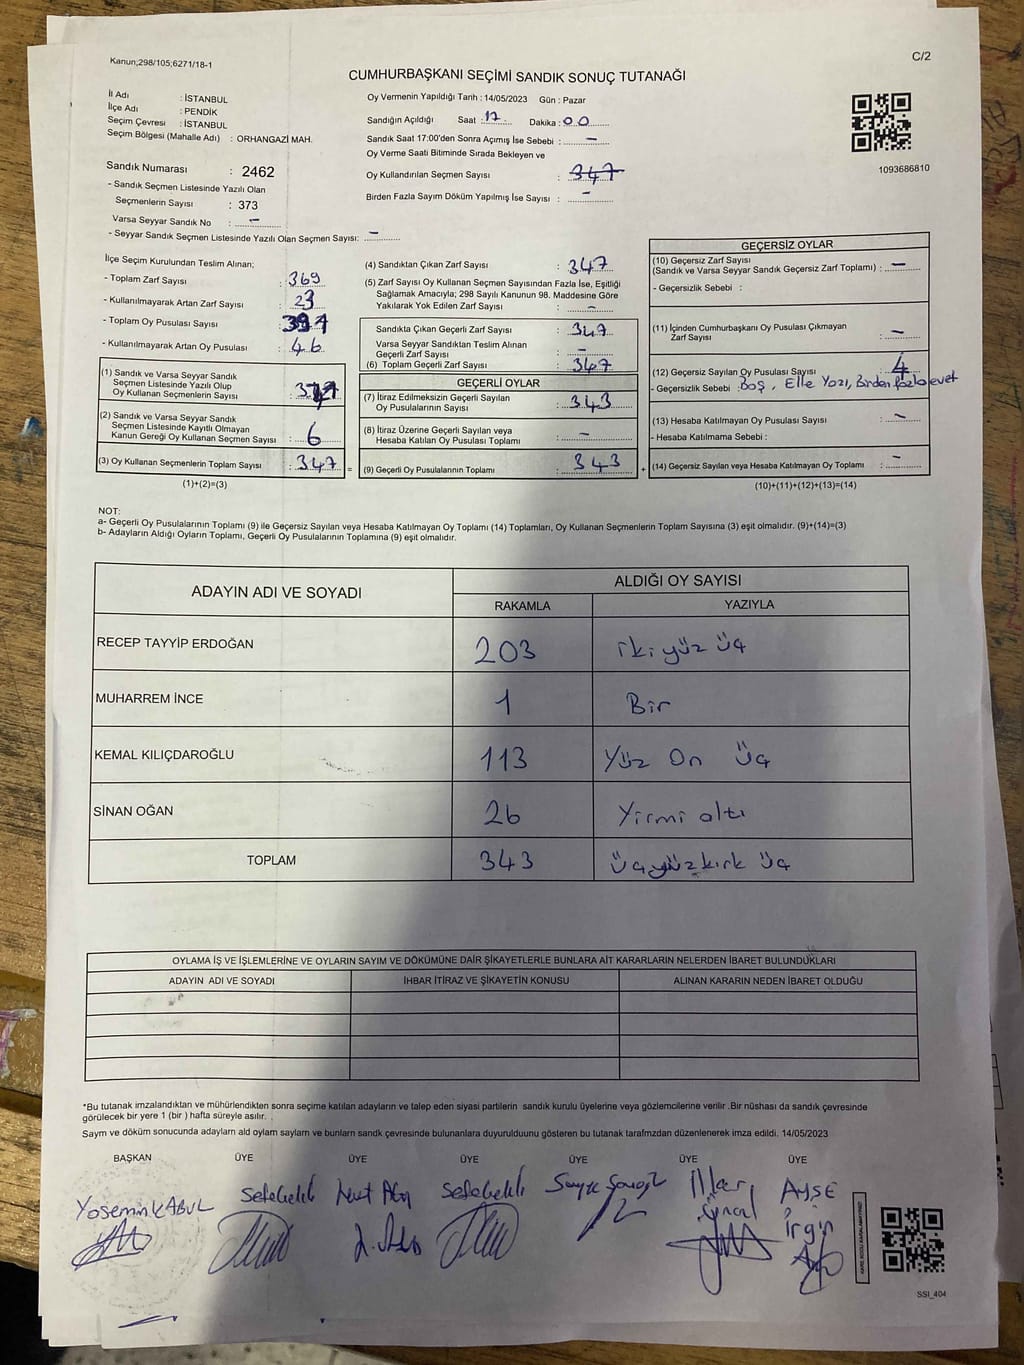 Kanun;298/105;6271/18-1
C/2
CUMHURBAŞKANI SEÇİMİ SANDIK SONUÇ TUTANAĞI
İl Adı : İSTANBUL
İlçe Adı : PENDİK
Seçim Çevresi : İSTANBUL
Seçim Bölgesi (Mahalle Adı) : ORHANGAZİ MAH.
Sandık Numarası : 2462
- Sandık Seçmen Listesinde Yazılı Olan
Seçmenlerin Sayısı : 373
Varsa Seyyar Sandık No : -
- Seyyar Sandık Seçmen Listesinde Yazılı Olan Seçmen Sayısı: -
Oy Vermenin Yapıldığı Tarih : 14/05/2023 Gün : Pazar
Sandığın Açıldığı Saat : 17 Dakika : 00
Sandık Saat 17:00'den Sonra Açımış İse Sebebi : -
Oy Verme Saati Bitiminde Sırada Bekleyen ve
Oy Kullandırılan Seçmen Sayısı : 347
Birden Fazla Sayım Döküm Yapılmış İse Sayısı : -
1093686810
İlçe Seçim Kurulundan Teslim Alınan;
- Toplam Zarf Sayısı : 369
- Kullanılmayarak Artan Zarf Sayısı : 23
- Toplam Oy Pusulası Sayısı :
- Kullanılmayarak Artan Oy Pusulası : 46
(1) Sandık ve Varsa Seyyar Sandık
Seçmen Listesinde Yazılı Olup
Oy Kullanan Seçmenlerin Sayısı :
(2) Sandık ve Varsa Seyyar Sandık
Seçmen Listesinde Kayıtlı Olmayan
Kanun Gereği Oy Kullanan Seçmen Sayısı : 6
(3) Oy Kullanan Seçmenlerin Toplam Sayısı : 347 =
(1)+(2)=(3)
(4) Sandıktan Çıkan Zarf Sayısı : 347
(5) Zarf Sayısı Oy Kullanan Seçmen Sayısından Fazla İse, Eşitliği
Sağlamak Amacıyla; 298 Sayılı Kanunun 98. Maddesine Göre
Yakılarak Yok Edilen Zarf Sayısı : -
Sandıkta Çıkan Geçerli Zarf Sayısı : 347
Varsa Seyyar Sandıktan Teslim Alınan
Geçerli Zarf Sayısı : -
(6) Toplam Geçerli Zarf Sayısı : 347
GEÇERLİ OYLAR
(7) İtiraz Edilmeksizin Geçerli Sayılan
Oy Pusulalarının Sayısı : 343
(8) İtiraz Üzerine Geçerli Sayılan veya
Hesaba Katılan Oy Pusulası Toplamı : -
(9) Geçerli Oy Pusulalarının Toplamı : 343 +
GEÇERSİZ OYLAR
(10) Geçersiz Zarf Sayısı
(Sandık ve Varsa Seyyar Sandık Geçersiz Zarf Toplamı) : -
- Geçersizlik Sebebi :
(11) İçinden Cumhurbaşkanı Oy Pusulası Çıkmayan
Zarf Sayısı : -
(12) Geçersiz Sayılan Oy Pusulası Sayısı : 4
- Geçersizlik Sebebi : Boş, Elle Yazı, Birden fazla evet
(13) Hesaba Katılmayan Oy Pusulası Sayısı : -
- Hesaba Katılmama Sebebi :
(14) Geçersiz Sayılan veya Hesaba Katılmayan Oy Toplamı : -
(10)+(11)+(12)+(13)=(14)
NOT:
a- Geçerli Oy Pusulalarının Toplamı (9) ile Geçersiz Sayılan veya Hesaba Katılmayan Oy Toplamı (14) Toplamları, Oy Kullanan Seçmenlerin Toplam Sayısına (3) eşit olmalıdır. (9)+(14)=(3)
b- Adayların Aldığı Oyların Toplamı, Geçerli Oy Pusulalarının Toplamına (9) eşit olmalıdır.
ADAYIN ADI VE SOYADI ALDIĞI OY SAYISI
RAKAMLA YAZIYLA
RECEP TAYYİP ERDOĞAN 203 iki yüz üç
MUHARREM İNCE 1 Bir
KEMAL KILIÇDAROĞLU 113 Yüz On Üç
SİNAN OĞAN 26 Yirmi altı
TOPLAM 343 Üçyüzkırk Üç
OYLAMA İŞ VE İŞLEMLERİNE VE OYLARIN SAYIM VE DÖKÜMÜNE DAİR ŞİKAYETLERLE BUNLARA AİT KARARLARIN NELERDEN İBARET BULUNDUKLARI
ADAYIN ADI VE SOYADI İHBAR İTİRAZ VE ŞİKAYETİN KONUSU ALINAN KARARIN NEDEN İBARET OLDUĞU
*Bu tutanak imzalandıktan ve mühürlendikten sonra seçime katılan adayların ve talep eden siyasi partilerin sandık kurulu üyelerine veya gözlemcilerine verilir .Bir nüshası da sandık çevresinde
görülecek bir yere 1 (bir ) hafta süreyle asılır.
Sayım ve döküm sonucunda adayların ald oyların sayların ve bunların sandk çevresinde bulunanlara duyurulduunu gösteren bu tutanak tarafmzdan düzenlenerek imza edildi. 14/05/2023
BAŞKAN ÜYE ÜYE ÜYE ÜYE ÜYE ÜYE
Yasemin KABUL AYŞE
İrgin
SSI_404